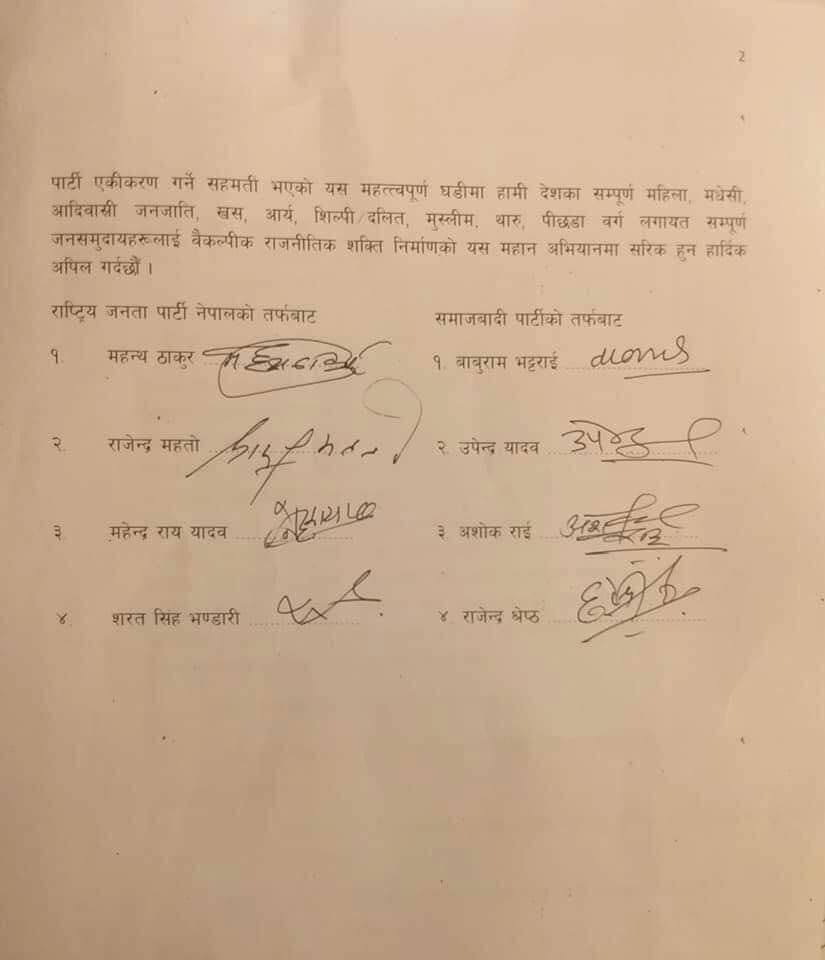 2
पार्टी एकीकरण गर्ने सहमती भएको यस महत्त्वपूर्ण घडीमा हामी देशका सम्पूर्ण महिला, मधेसी,
आदिवासी जनजाति, खस, आर्य, शिल्पी/दलित, मुस्लीम, थारु, पीछडा वर्ग लगायत सम्पूर्ण
जनसमुदायहरूलाई वैकल्पीक राजनीतिक शक्ति निर्माणको यस महान अभियानमा सरिक हुन हार्दिक
अपिल गर्दछौं ।
राष्ट्रिय जनता पार्टी नेपालको तर्फबाट
समाजबादी पार्टीको तर्फबाट
१. महन्थ ठाकुर
१. बाबुराम भट्टराई
२. राजेन्द्र महतो
२. उपेन्द्र यादव
३. महेन्द्र राय यादव
३. अशोक राई
४ शरत सिंह भण्डारी
४. राजेन्द्र श्रेष्ठ